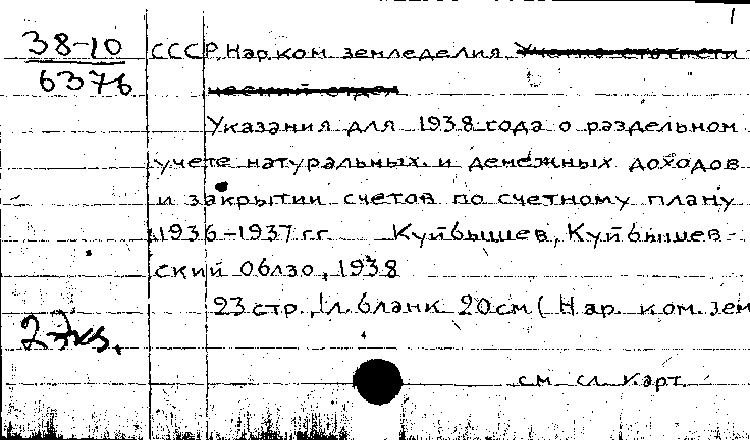 1
38-10
6376
СССР. Нар. ком. земледелия. Учетно-статисти
ческий отдел
Указания для 1938 года о раздельном
учете натуральных и денежных доходов
и закрытии счетов по счетному плану
1936-1937 гг. Куйбышев, Куйбышев-
ский Облзо, 1938
23 стр., 1 л. бланк 20 см (Нар. ком. зем
2 экз.
см. сл. карт.